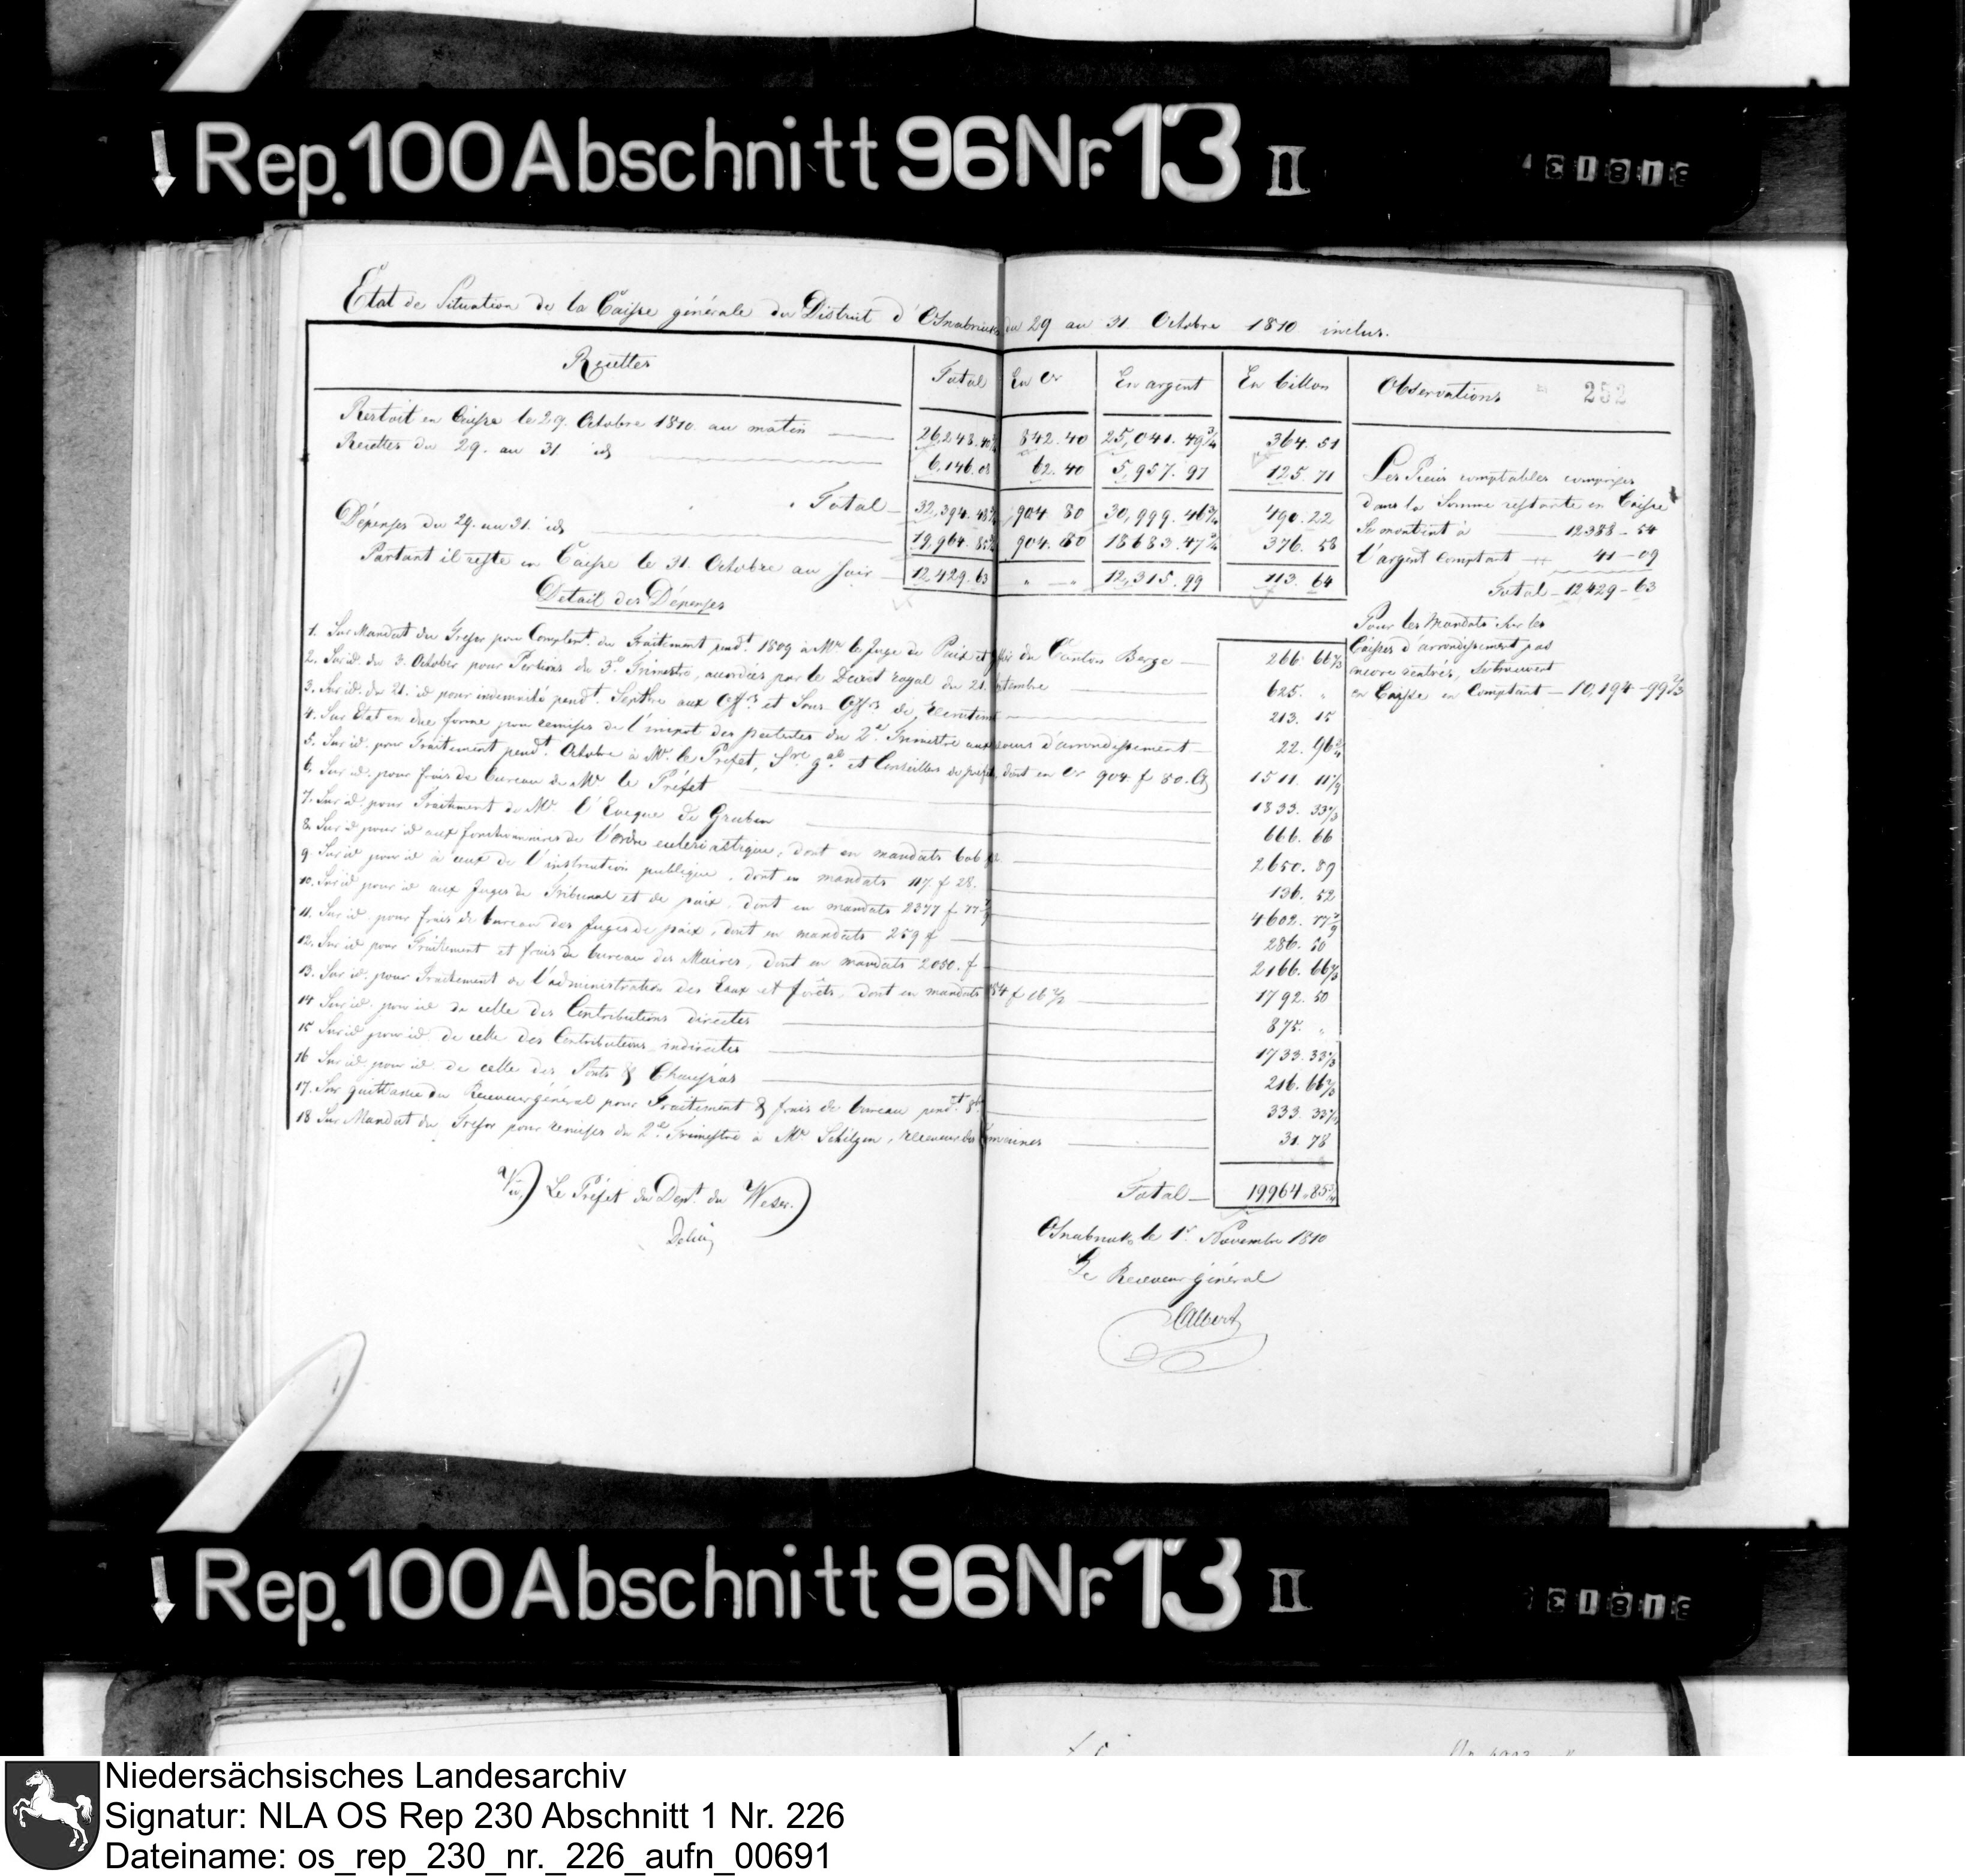 Rep. 100 Abschnitt 96 Nr. 13 II
Etat de Situation de la Caisse générale du District d'Osnabruck du 29 au 31 Octobre 1810 inclus.
Recettes Total En or En argent En billon Observations 252
Restoit en Caisse le 29. Octobre 1810. au matin 26,248. 40¾ 842. 40 25,041. 49¾ 364. 51
Recettes du 29. au 31 id 6,146. 08 62. 40 5,957. 97 125. 71
Total 32,394. 48¾ 904 80 30,999. 46¾ 490. 22
Dépenses du 29. au 31. id 19,964. 85¾ 904. 80 18683. 47¾ 376. 58
Partant il reste en Caisse le 31. Octobre au soir 12429. 63 " — " 12,315. 99 113. 64
Les Pieces comptables comprises
dans la Somme restante en Caisse
Se montent à 12388 - 54
l'argent comptant 41 - 09
Total - 12429 - 63
Pour les Mandats sur les
Caisses d'arrondissement pas
encore rentrés, se trouvent
en Caisse en Comptant - 10,194 - 99⅔
Detail des Dépenses
1. Sur Mandat du Tresor pour Complemt. du Traitement pendt. 1809 à Mr. le Juge de Paix et du Canton Berge 266. 66⅔
2. Sur id. du 3. October pour Portions du 3e. Trimestre, accordées par le Decret royal du 21. Septembre 625. "
3. Sur id. du 21. id pour indemnité pendt. Septbre aux Offrs. et Sous Offrs. de Recrutemt 213. 15
4. Sur Etat en due forme pour remises de l'impot des patentes du 2e. Trimestre aux d'arrondissement 22. 96¾
5. Sur id. pour Traitement pendt. Octobre à Mr. le Prefet, Sre. gal. et Conseillers de prefre, dont en or 904 f 80. Cs 1511. 11 1/9
6. Sur id. pour frais de bureau de Mr. le Préfet 1833. 33⅓
7. Sur id. pour Traitement de Mr. l'Eveque de Gruben 666. 66
8. Sur id pour id aux fonctionnaires de l'ordre eclesiastique, dont en mandats 2650. 89
9. Sur id pour id à ceux de l'instruction publique, dont en mandats 117 f 28. 136. 52
10. Sur id pour id aux Juges de Tribunal et de paix, dont en mandats 2377 f 77 7/9 4602. 77 7/9
11. Sur id. pour frais de bureau des Juges de paix, dont en mandats 259 f 286. 50
12. Sur id pour Traitement et frais de bureau des Maires, dont en mandats 2050. f 2166. 66⅔
13. Sur id. pour Traitement de l'administration des Eaux et forêts, dont en mandats 1792. 50
14 Sur id. pour id de celle des Contributions directes 875. "
15 Sur id pour id. de celle des Contributions indirectes 1733. 33⅓
16 Sur id. pour id de celle des Ponts & Chaussées 216. 66⅔
17. Sur quittance du Receveur général pour Traitement & frais de bureau pendt. 8br 333. 33⅓
18 Sur Mandat du Tresor pour remises du 2e Trimestre à Mr. Schilgen, receveur des Domaines 31. 78
Total 19964. 85¾
Vu, Le Préfet du Dept. du Weser.
Delius
Osnabruck, le 1r. Novembre 1810
Le Receveur général
Rep. 100 Abschnitt 96 Nr. 13 II
Niedersächsisches Landesarchiv
Signatur: NLA OS Rep 230 Abschnitt 1 Nr. 226
Dateiname: os_rep_230_nr._226_aufn_00691